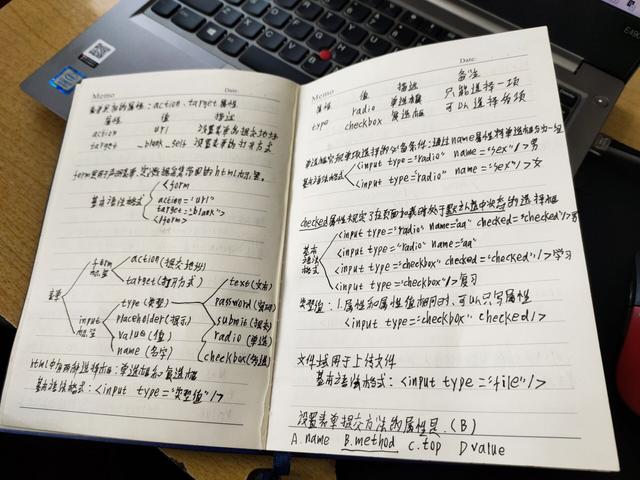 Memo Date:
表单添加的属性:action、target属性
属性 值 描述
action url 设置表单的提交地址
target _blank _self 设置表单的打开方式
form用于声明表单,定义数据采集范围的html标签。
<form
基本语法格式 action="url"
target="blank">
</form>
表单
form标签
action(提交地址)
target(打开方式)
input标签
type(类型)
placeholder(提示)
value(值)
name(名字)
text(文本)
password(密码)
submit(提交)
radio(单选)
checkbox(多选)
html中有两种选择框:单选框和复选框
基本语法格式:<input type="类型值"/>
Memo Date:
属性 值 描述 备注
type radio 单选框 只能选择一项
checkbox 复选框 可以选择多项
单选框实现单项选择的必备条件:通过name属性将单选框分为一组
基本语法格式
<input type="radio" name="sex"/>男
<input type="radio" name="sex"/>女
checked属性规定了在页面加载时处于默认选中状态的选择框
基本语法格式
<input type="radio" name="aa" checked="checked"/>
<input type="radio" name="aa"
<input type="checkbox" checked="checked"/>学习
<input type="checkbox"/>复习
类型值:1.属性和属性值相同时,可以只写属性
<input type="checkbox" checked/>
文件域用于上传文件
基本语法格式:<input type="file"/>
设置表单提交方法的属性是(B)
A.name B.method C.top D value